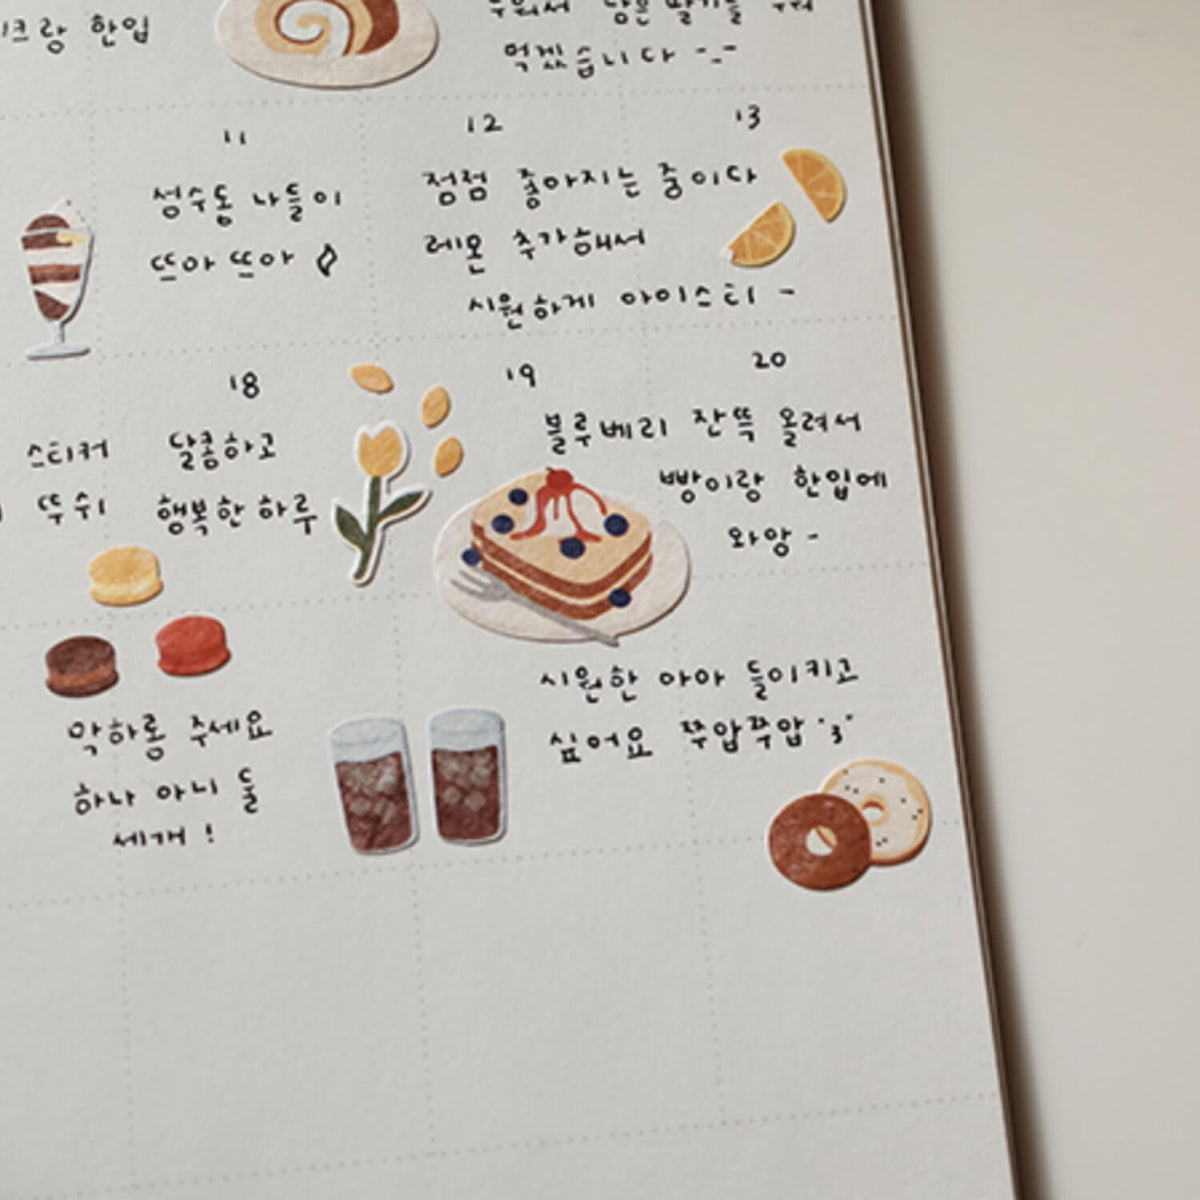 크랑 한입
먹겠습니다 -_-
11
성수동 나들이
뜨아 뜨아
12
13
점점 좋아지는 중이다
레몬 추가해서
시원하게 아이스티 -
스티커
뚝 쉬
18
달콤하고
행복한 하루
19
20
블루베리 잔뜩 올려서
빵이랑 한입에
와앙 -
막하롱 주세요
하나 아니 둘
세개 !
시원한 아아 들이키고
싶어요 쭈압쭈압 '3'